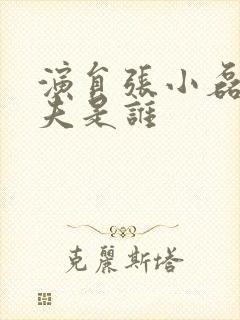 演員張小磊
夫是誰
克麗斯塔